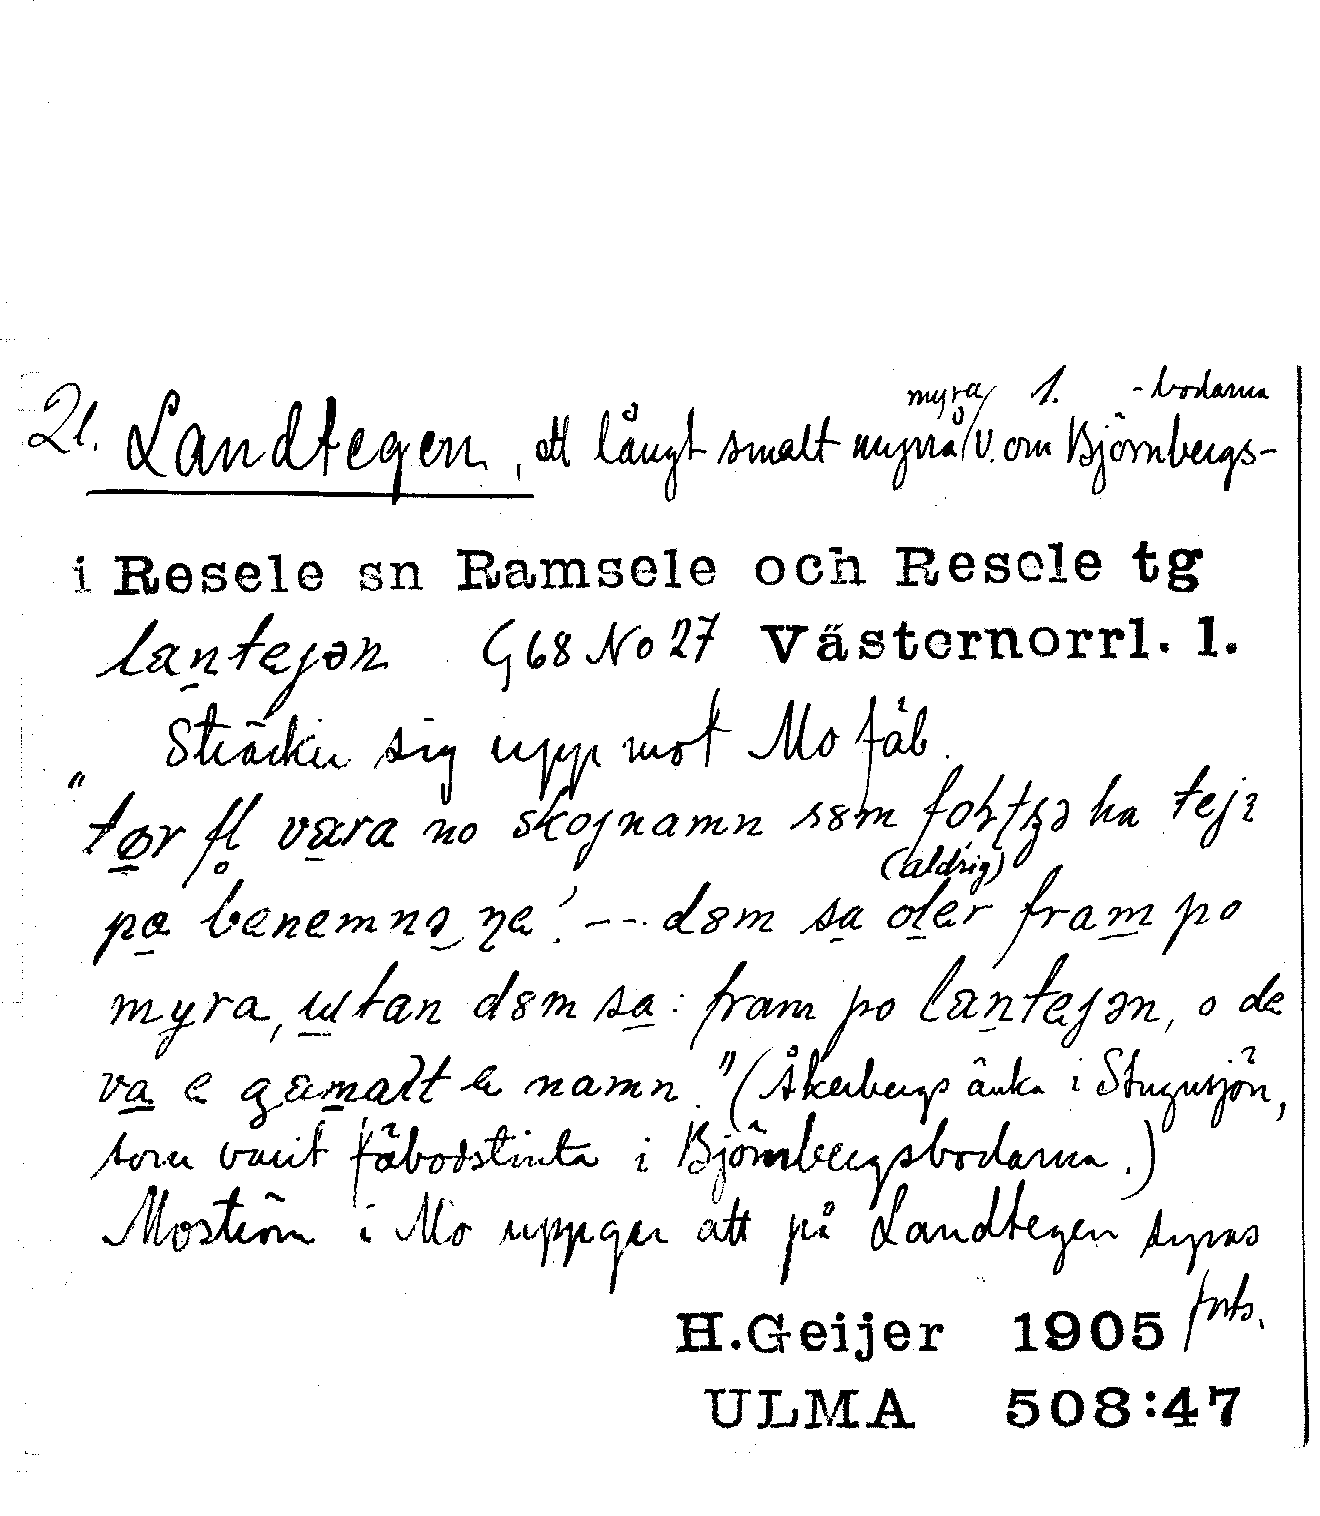 21. Landtegen, ett långt smalt myrså/V. om Björnbergs-
myra/ 1. -bodarna
i Resele sn Ramsele och Resele tg
lantejən G68 No 27 Västernorrl. l.
Sträcker sig upp mot Mo fäb.
vara no skojnamn søm ha
pa --- døm sa (aldrig) fram po
myra, utan døm sa: fram po lantejən, o de
va e gamalt namn." (Åkerbergs änka i Stugusjön,
som varit fäbodstinta i Björnbergsbodarna.)
Moström i Mo uppger att på Landtegen synas
forts.
H.Geijer 1905
ULMA 508:47